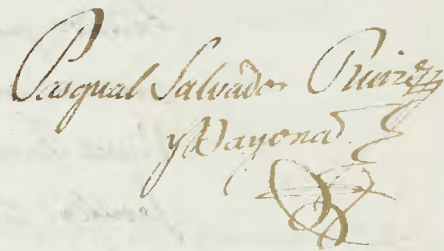 Pasqual Salvador Ruiz
y Bayona